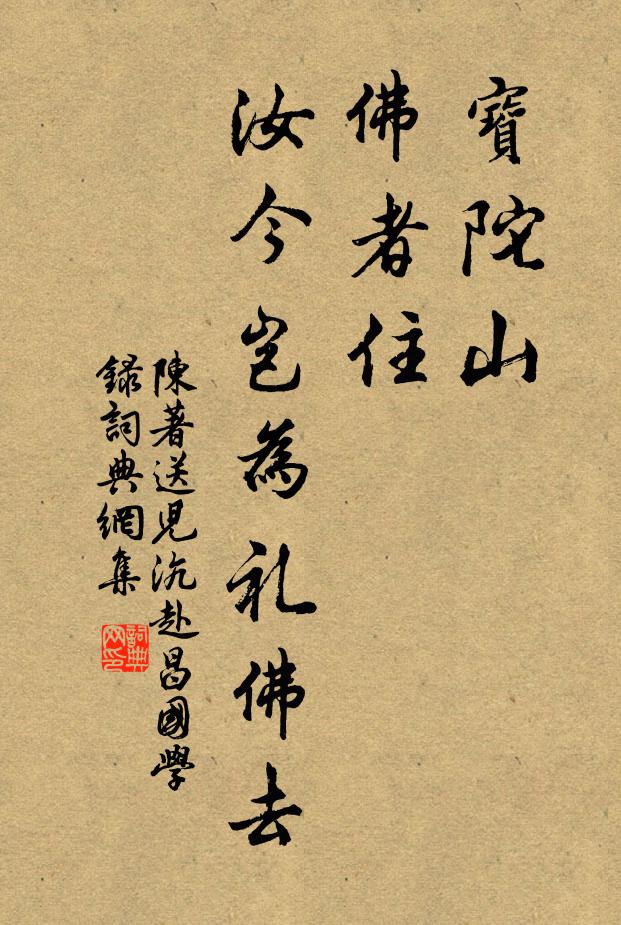 寶陀山
佛者住
汝今豈為礼佛去
陳著送兒沆赴昌國學
録詞典網集
詞典网印